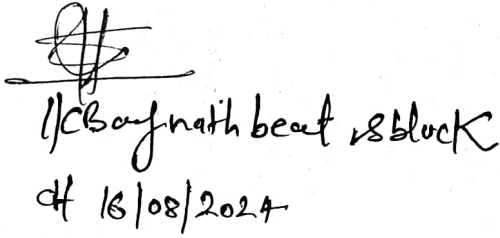 I/C Baynath beat ,S block
dt 16/08/2024